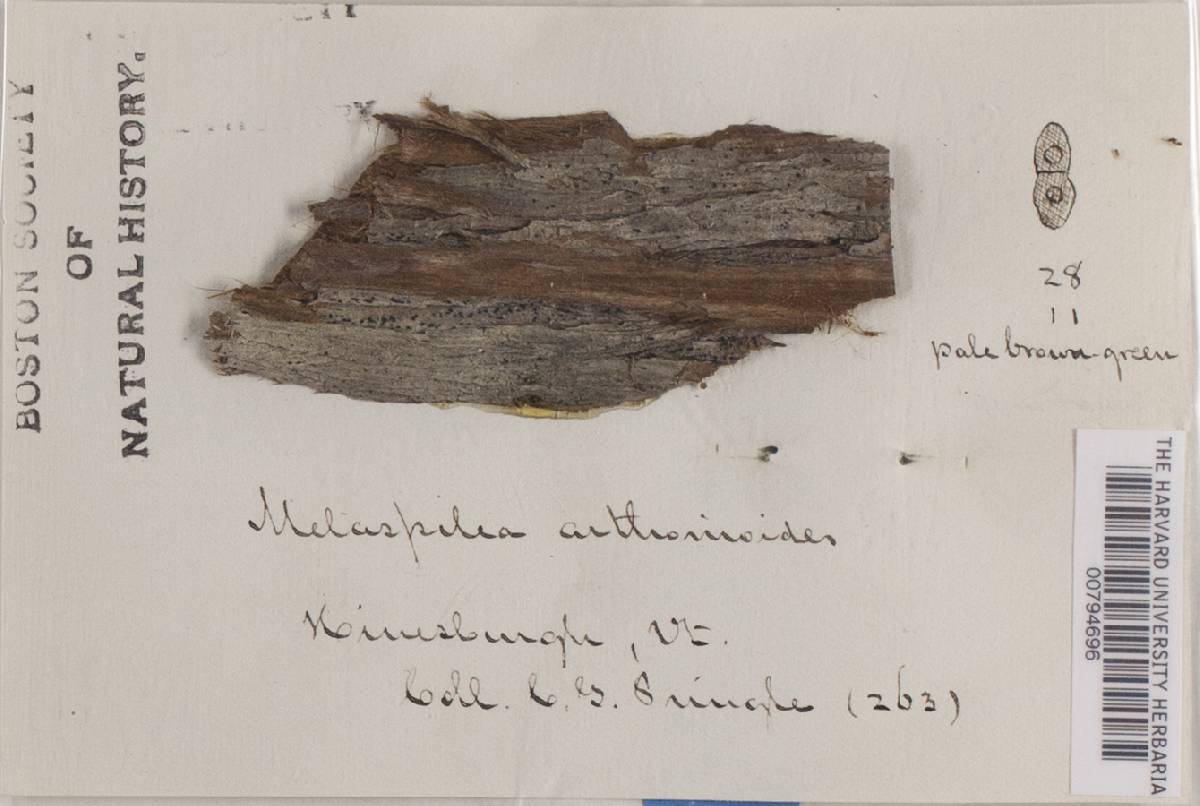 BOSTON SOCIETY
OF
NATURAL HISTORY.
28
11
pale brown-green
Melaspilea arthonioides
Hinesburgh, Vt.
Coll. C. G. Pringle (263)
THE HARVARD UNIVERSITY HERBARIA
00794696